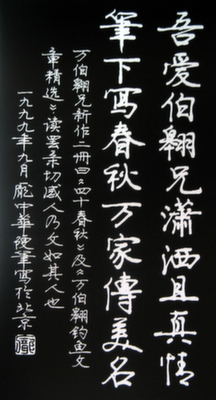 吾爱伯翱兄瀟洒且真情
筆下寫春秋万家傳美名
万伯翱兄新作二册《四十春秋》及《万伯翱钓鱼文
章精选》读罢亲切感人乃文如其人也
一九九九年九月庞中华硬筆寫於北京